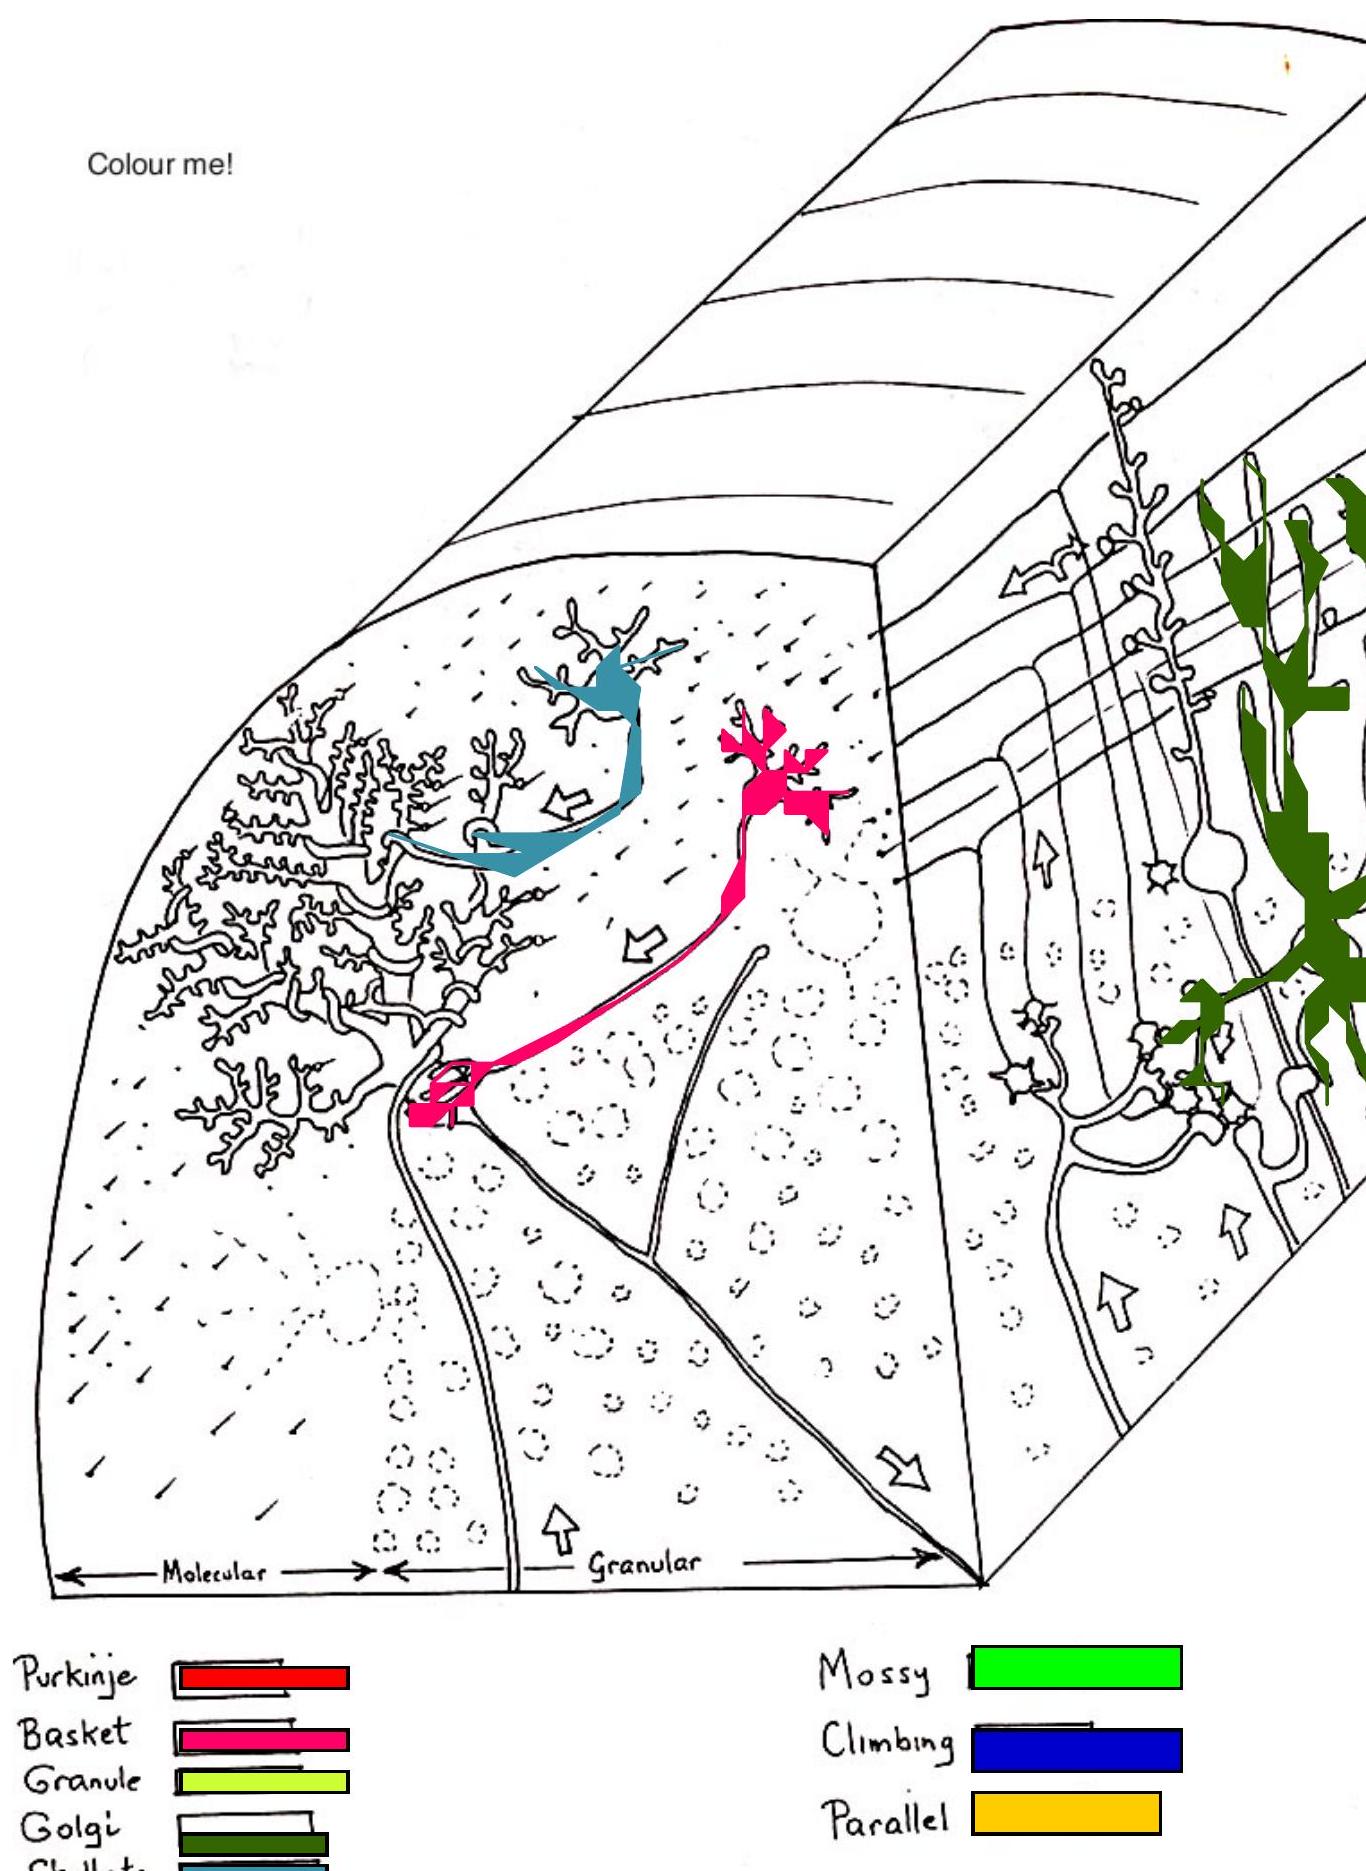 Colour me!
Molecular
Granular
Purkinje
Basket
Granule
Golgi
Mossy
Climbing
Parallel